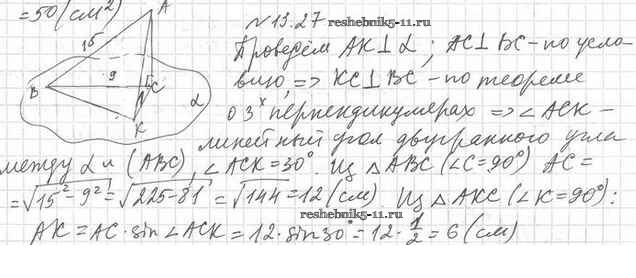 =50(см²)
№13.27
reshebnik5-11.ru
A
15
9
B
C
K
α
Проведём AK⊥α; AC⊥BC-по усло-
вию, => KC⊥BC-по теореме
о 3ˣ перпендикулярах => ∠ACK-
линейный угол двугранного угла
между α и (ABC), ∠ACK=30°. Из △ABC (∠C=90°) AC=
=√15²-9²=√225-81=√144=12(см). Из △AKC (∠K=90°):
reshebnik5-11.ru
AK=AC·sin∠ACK=12·sin30°=12·1/2=6(см)